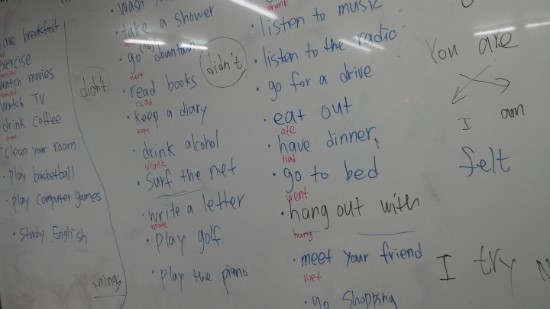 exercise
watch movies
watch TV
drink coffee
clean your room
• play basketball
• play computer games
• study English
didn't
wash
take a shower
• go downtown
went
• read books
read
• keep a diary
kept
• drink alcohol
drank
• surf the net
• write a letter
wrote
• play golf
• play the piano
didn't
drank
• listen to music
• listen to the radio
• go for a drive
went
• eat out
ate
• have dinner
had
• go to bed
went
• hang out with
hung
• meet your friend
met
• go shopping
You are
I am
felt
I try